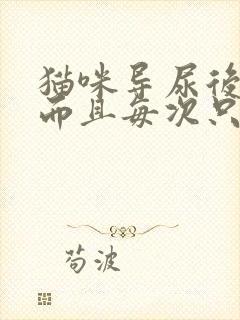 猫咪导尿後
而且每次只
苟波